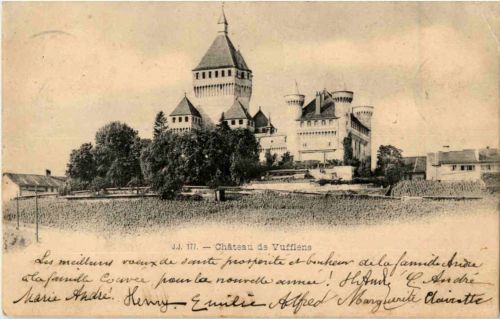 J.J. 177. — Château de Vufflens
Les meilleurs vœux de santé prospérité et bonheur de la famille André
à la famille pour la nouvelle année! H. André C. André
Marie André. Henry. Emilie Alfred Marguerite